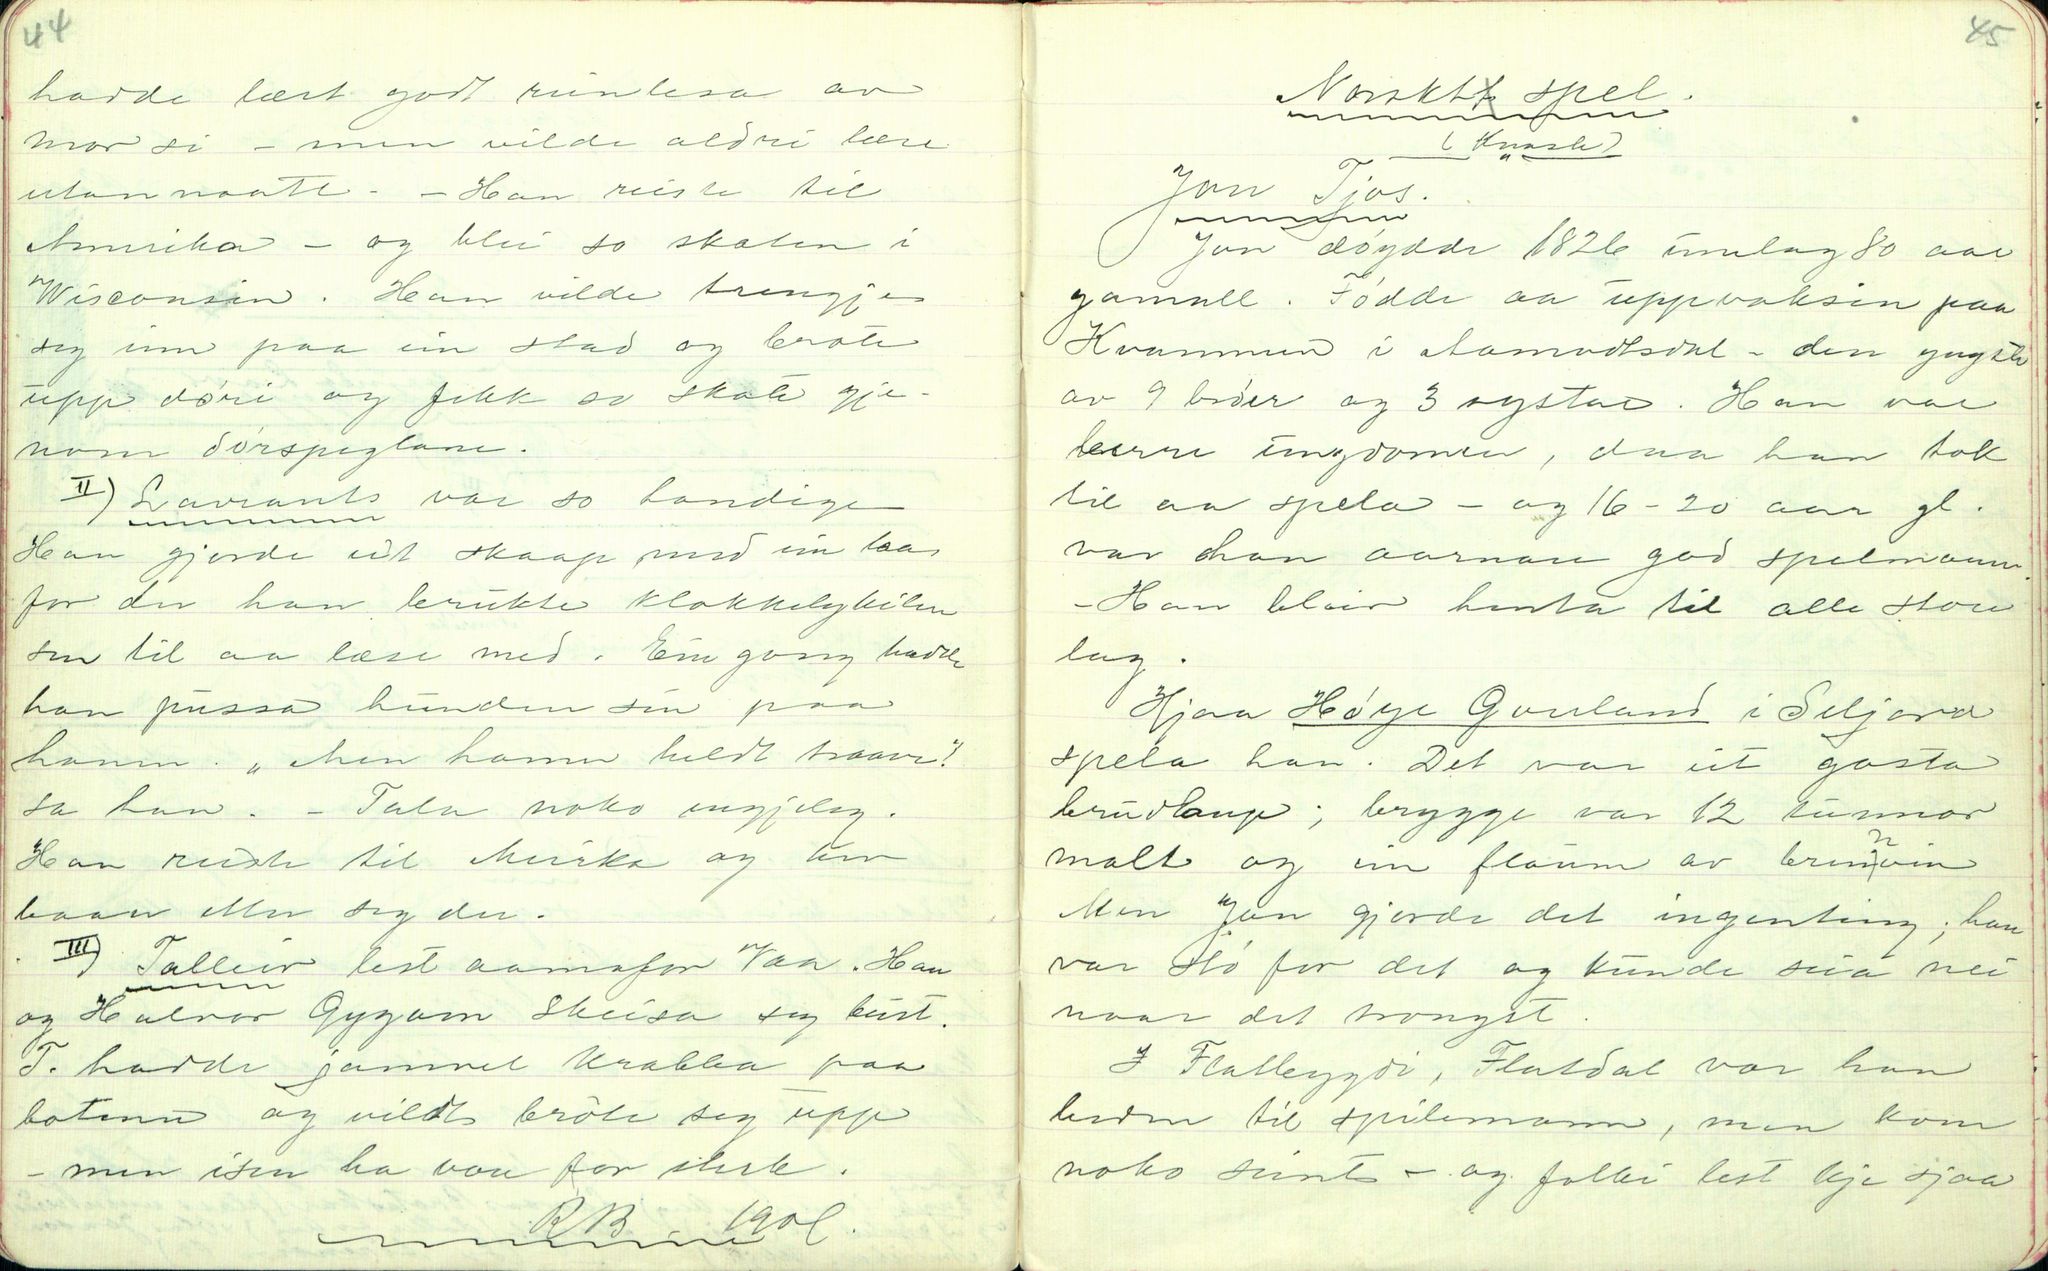 44
hadde lært godt runlesa av
mor si – men vilde aldri lære
utan naatt. – Han reiste til
Amerika – og blei so skoten i
Wisconsin. Han vilde trengje
seg inn paa ein stad og brote
upp døri og fekk so skote gje-
nom dørspeglane.
II) Lavrants var so handige
Han gjorde eit skaap med ein laas
for der han brukte klokkelykilen
sin til aa læse med. Ein gong hadde
han pussa hunden sin paa
honom. "Men honom heldt traave"!
sa han. – Tala noko
Han reiste til Merika og
baan etter seg der.
III) Talleiv lest aamafor Vaa. Han
og Halvor Gygarn Skeisa seg burt.
T. hadde jamvel krabba paa
botnen og vildt brote seg upp
– men isen ha vore for sterk.
RB. 1901.
45
Norskt spel.
Jon Tjos.
Jon døydde 1826 umlag 80 aar
gamall. Fødde aa uppvaksin paa
Kvammen i Aamodtsdal – den yngste
av 9 brøer og 3 systar. Han var
berre ungdomen, daa han tok
til aa spela – og 16–20 aar gl.
var han aarnare god spelmann.
– Han bleiv henta til alle store
lag.
Hjaa Høye Gorland i Seljord
spela han. Det var eit gasta
brudlaup; brygge var 12 tunnor
malt og ein flaum av brennvin
Men Jon gjorde det ingenting; han
var stø for det og kunde seia nei
naar det trongst.
I Flatbygdi, Flatdal var han
beden til spelemann, men kom
noko seint – og folki lest kje sjaa